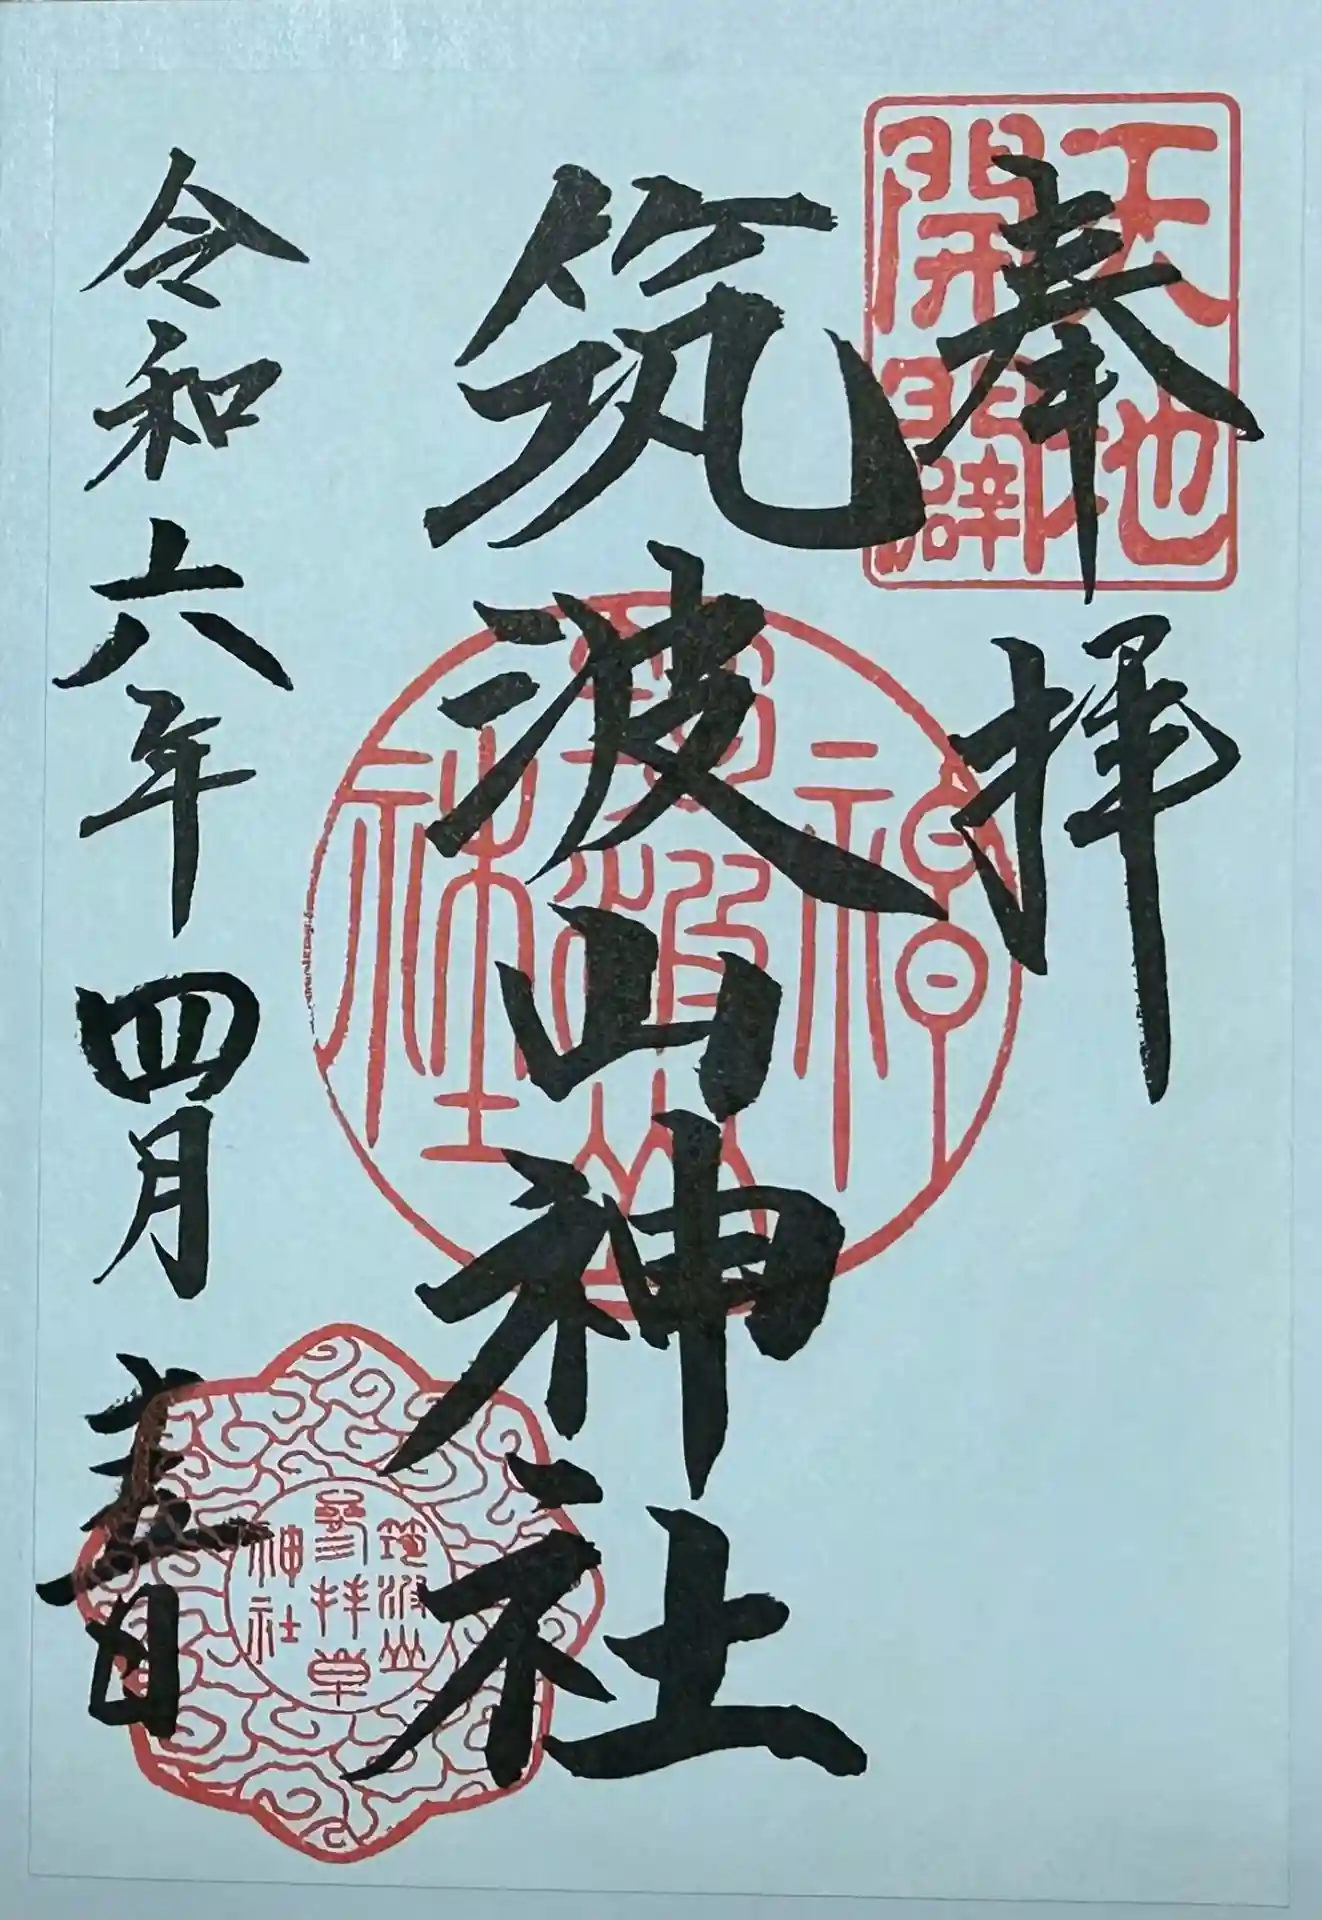 天地
開闢
奉拝
筑波山神社
神
筑波山
社
令和六年四月 日
筑波山
參拝章
神社